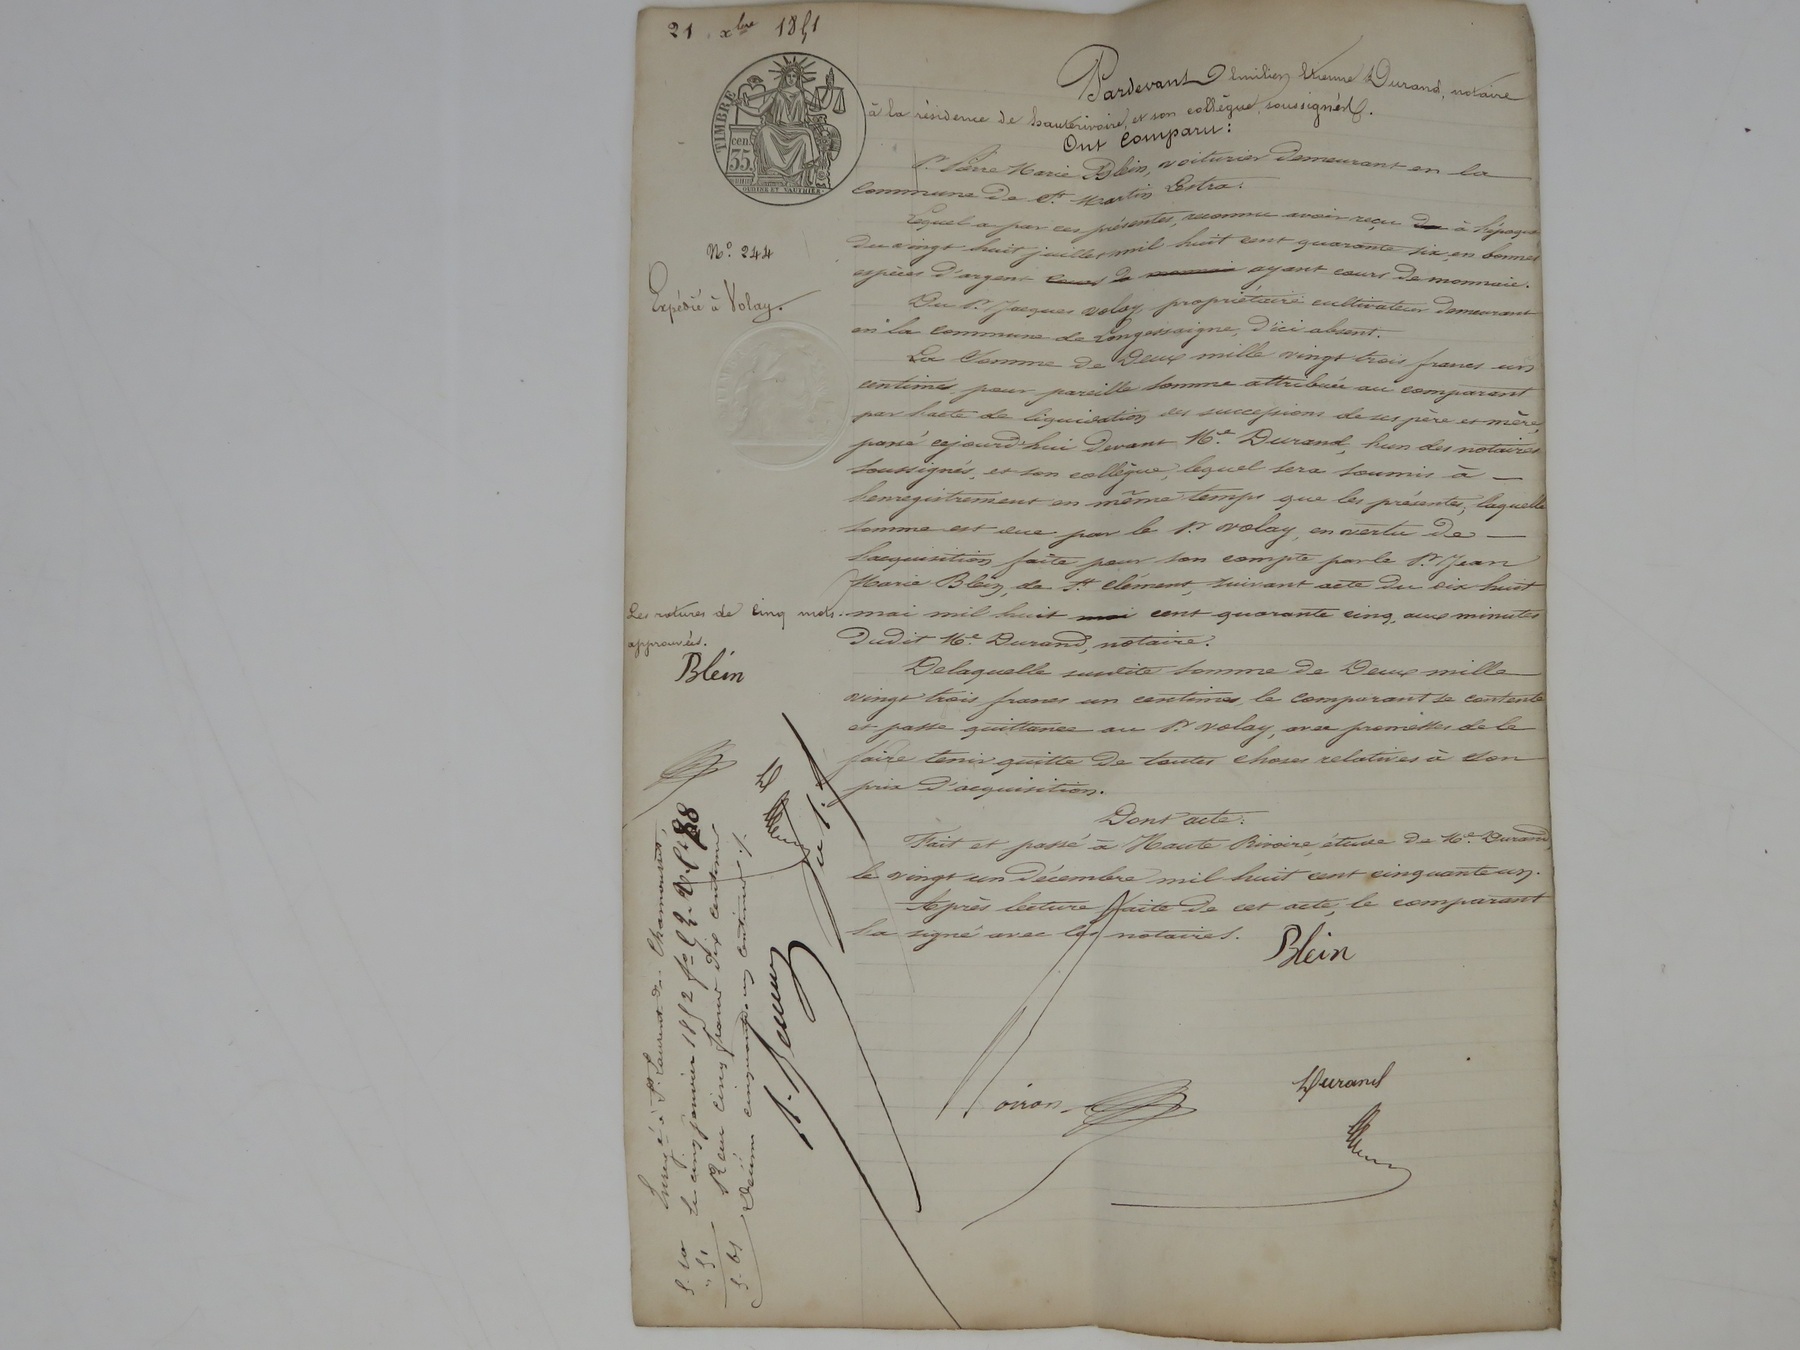 21 xbre 1851
TIMBRE
cen.
35
Pardevant Emilien Etienne Durand, notaire
à la résidence de hauterivoire, et son collègue, soussignés.
Ont Comparu:
Sr Pierre Marie Blein, voiturier demeurant en la
commune de St Martin Lestra.
Lequel a par ces présentes, reconnu avoir reçu à l'époque
du vingt huit juillet mil huit cent quarante six en bonnes
espèces d'argent ayant cours de monnaie.
N° 244
Expédié à Volay.
Du Sr Jacques Volay, propriétaire cultivateur demeurant
en la commune de Longessaigne, d'ici absent.
La Somme de Deux mille vingt trois francs un
centimes, pour pareille somme attribuée au comparant
par l'acte de liquidation des successions de ses père et mère,
passé cejourd'hui devant Me Durand, l'un des notaires
soussignés, et son collègue, lequel sera soumis à —
l'enregistrement en même temps que les présentes, laquelle
somme est due par le Sr Volay, en vertu de —
l'acquisition faite pour son compte par le Sr Jean
Marie Blein, de St Clément, suivant acte du dix huit
mai mil huit cent quarante cinq, aux minutes
dudit Me Durand, notaire.
Les ratures de cinq mots
approuvées.
Blein
Delaquelle susdite somme de Deux mille
vingt trois francs un centimes, le comparant se contente
et passe quittance au Sr Volay, avec promesses de le
faire tenir quitte de toutes choses relatives à son
prix d'acquisition.
Dont acte.
Fait et passé à Haute Rivoire, étude de Me Durand,
le vingt un décembre mil huit cent cinquante un.
Après lecture faite de cet acte, le comparant
l'a signé avec les notaires.
Blein
Noiron
Durand
Enregé à St Laurent de Chamousset,
Le cinq janvier 1852 fo 52
Reçu cinq francs dix centimes
Décime cinquante un centimes
5.10
" 51
5.61